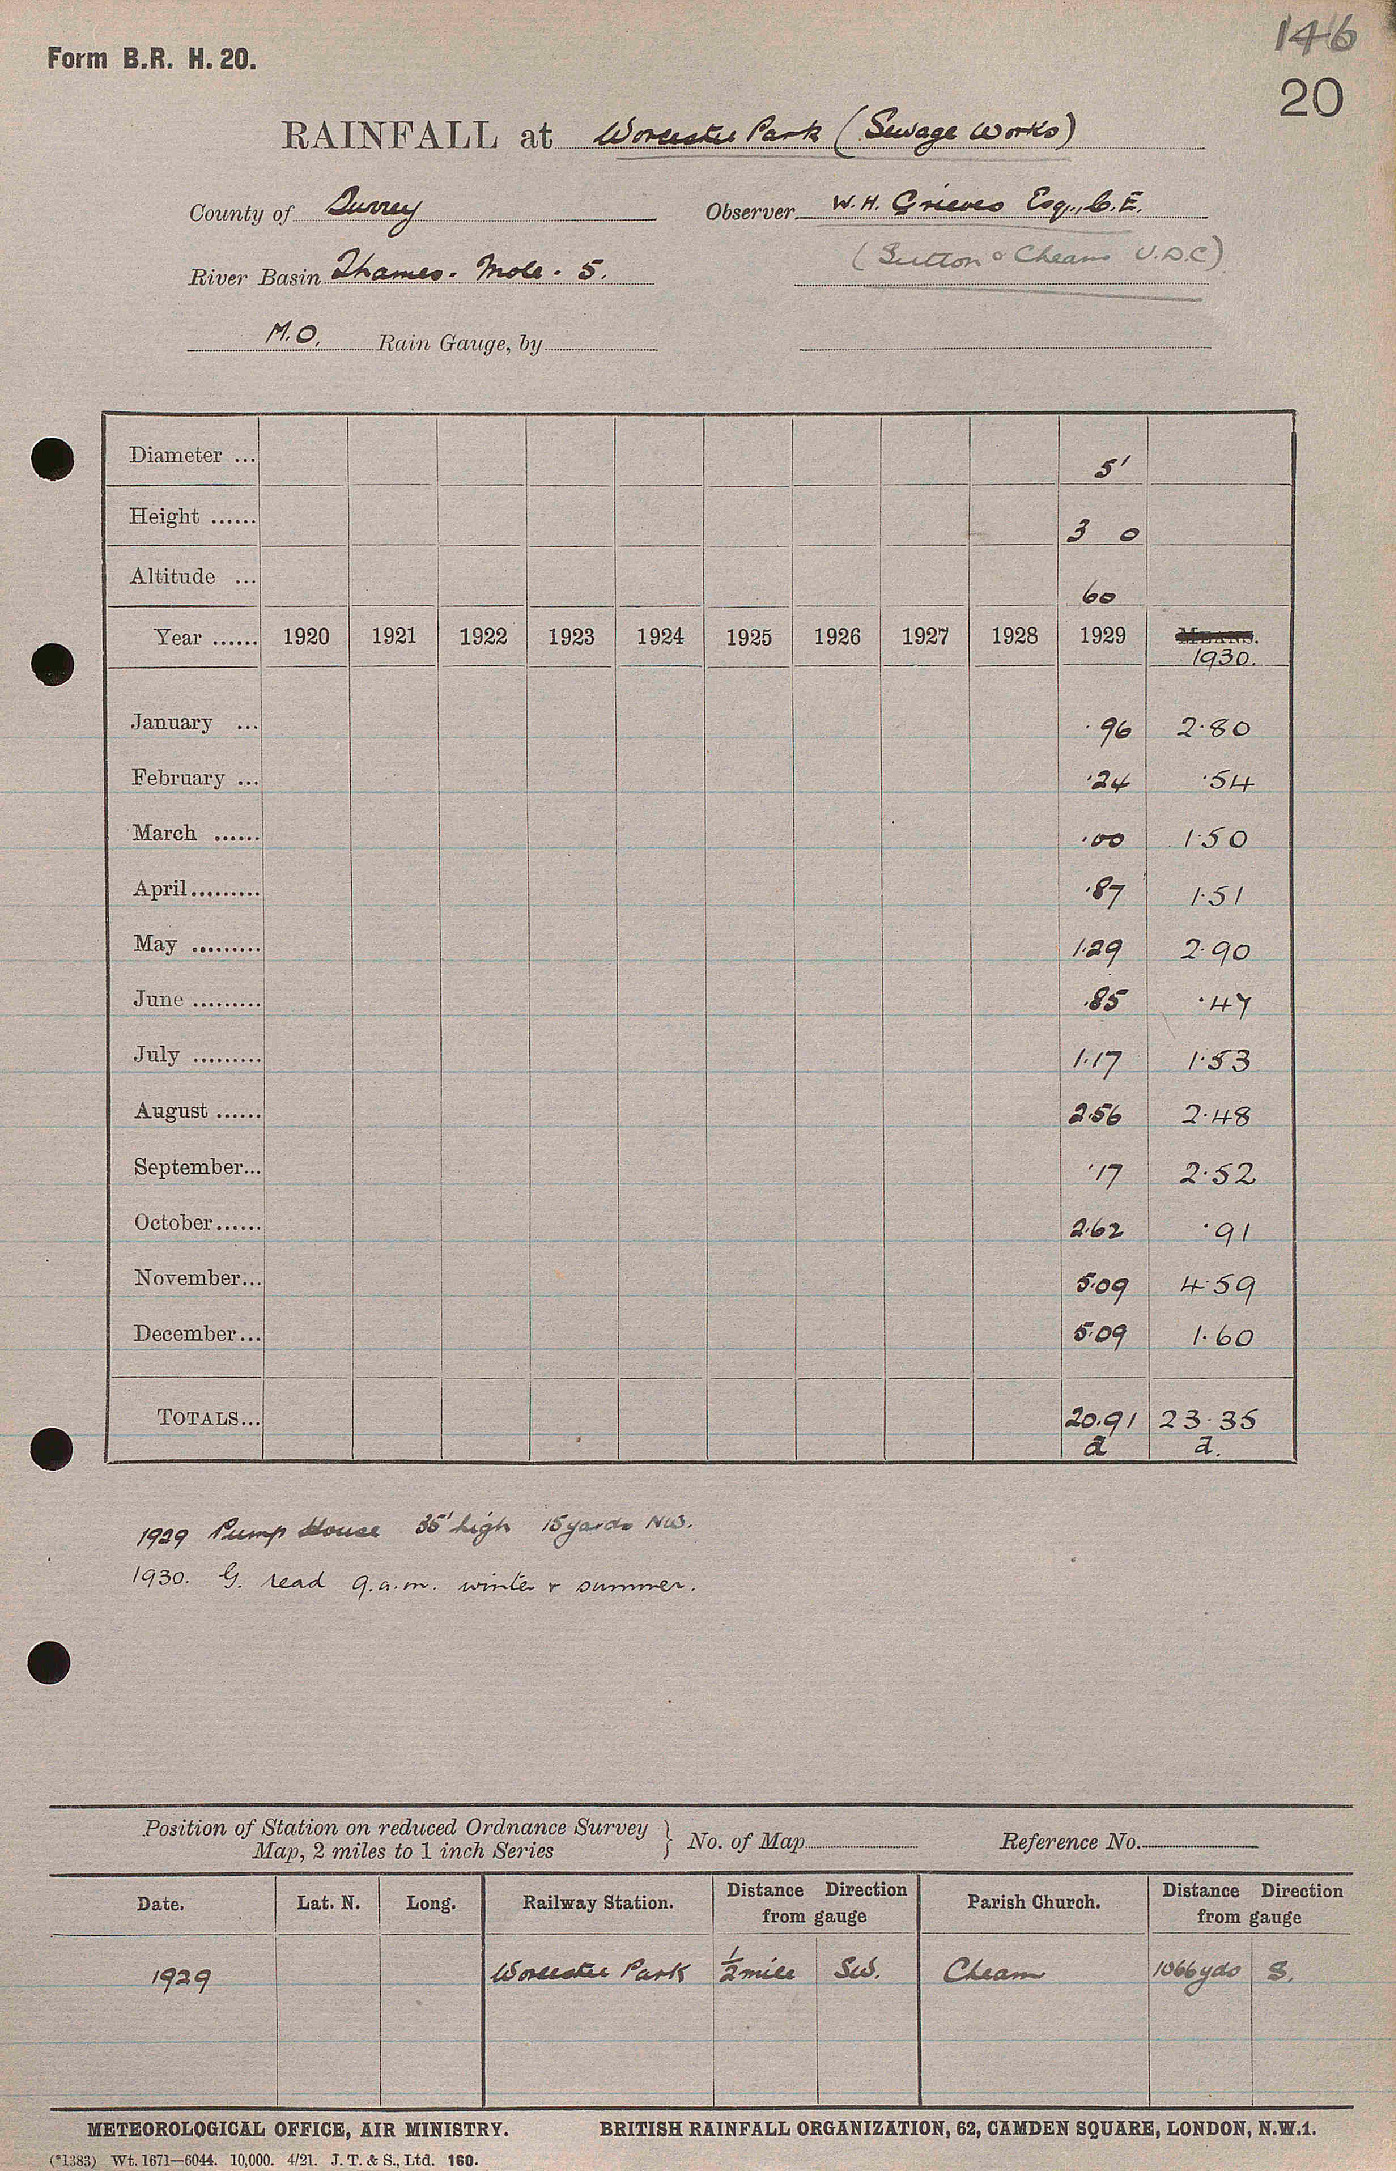 146
Form B.R. H. 20.
20
RAINFALL at Worcester Park (Sewage Works)
County of Surrey Observer W. H. Grieves Esq., C.E.
(Sutton & Cheam U.D.C)
River Basin Thames. Mole. 5.
M.O. Rain Gauge, by
Diameter ... 5"
Height ...... 3 0
Altitude ... 60
Year ...... 1920 1921 1922 1923 1924 1925 1926 1927 1928 1929 MEANS.
1930.
January ... .96 2.80
February ... .24 .54
March ...... .00 1.50
April ......... .87 1.51
May ......... 1.29 2.90
June ......... .85 .47
July ......... 1.17 1.53
August ...... 2.56 2.48
September... .17 2.52
October ...... 2.62 .91
November... 5.09 4.59
December... 5.09 1.60
TOTALS... 20.91 23.35
a a.
1929 Pump House 35' high 15 yards NW.
1930. G. read 9.a.m. winter & summer.
Position of Station on reduced Ordnance Survey
Map, 2 miles to 1 inch Series } No. of Map Reference No.
Date. Lat. N. Long. Railway Station. Distance Direction from gauge Parish Church. Distance Direction from gauge
1929 Worcester Park 1/2 mile SW. Cheam 1066 yds S.
METEOROLOGICAL OFFICE, AIR MINISTRY. BRITISH RAINFALL ORGANIZATION, 62, CAMDEN SQUARE, LONDON, N.W.1.
(*1383) Wt. 1671—6044. 10,000. 4/21. J. T. & S., Ltd. 160.